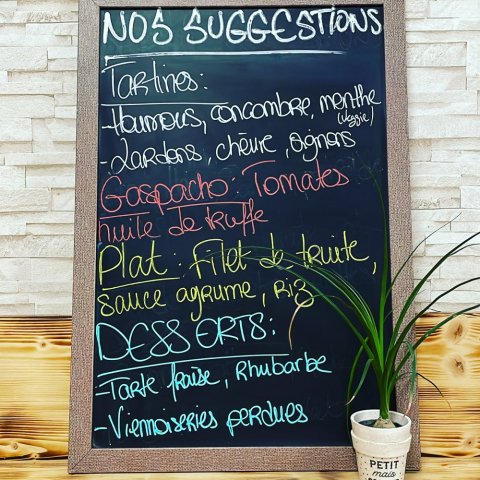 NOS SUGGESTIONS
Tartines:
-Houmous, concombre, menthe
(Veggie)
-Lardons, chèvre, oignons
Gaspacho: Tomates
huile de truffe
Plat: Filet de truite,
sauce agrume, Riz
DESSERTS:
-Tarte fraise, Rhubarbe
-Viennoiseries perdues
PETIT
mais